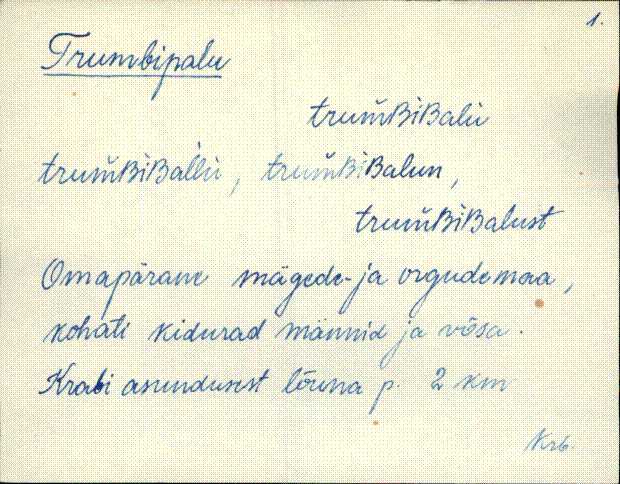 1.
Trumbipalu
trum̆BiBalu
trum̆BiBal̆lu, trum̆BiBalun,
trum̆BiBalust
Omapärane mägede- ja orgudemaa,
kohati kidurad männid ja võsa.
Krabi asundusest lõuna p. 2 km
Krb.